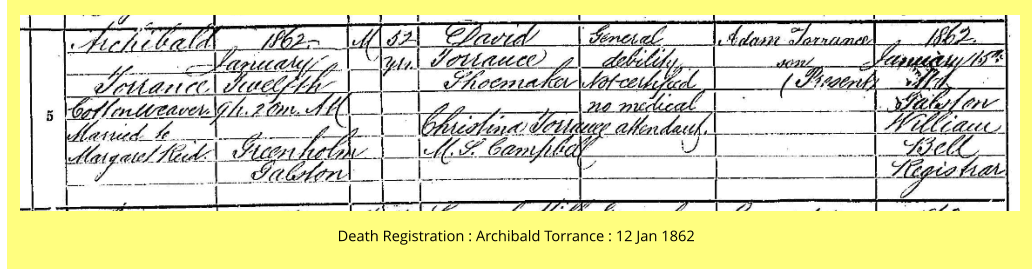 5
Archibald
Torrance
Cotton Weaver
Married to
Margaret Reid.
1862.
January
Twelfth
9h. 20m. AM
Greenholm
Galston
M
52
yrs.
David
Torrance
Shoemaker
Christina Torrance
M.S. Campbell
General
debility
Not certified
no medical
attendant.
Adam Torrance
son
(Present)
1862
January 15th
At
Galston
William
Bell
Registrar
Death Registration : Archibald Torrance : 12 Jan 1862